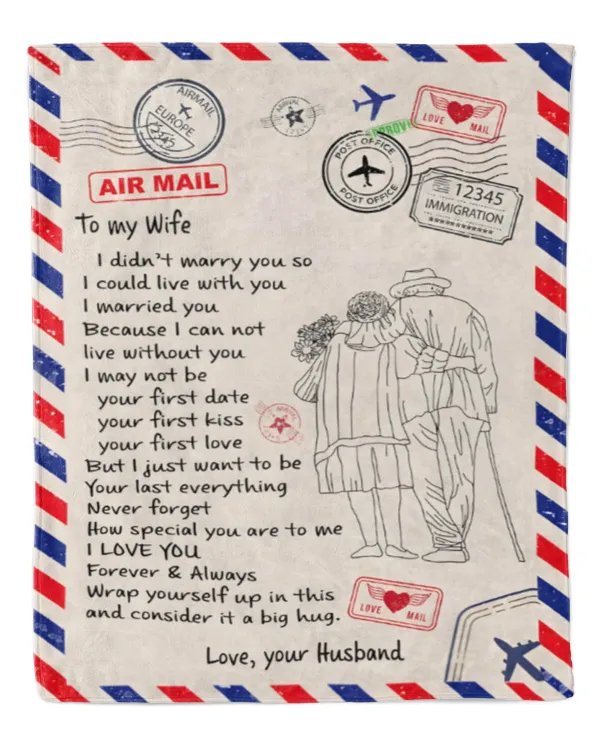 AIRMAIL
EUROPE
12345
ARRIVAL
12345
APPROV
LOVE MAIL
POST OFFICE
POST OFFICE
12345
IMMIGRATION
AIR MAIL
To my Wife
I didn't marry you so
I could live with you
I married you
Because I can not
live without you
I may not be
your first date
your first kiss
your first love
But I just want to be
Your last everything
Never forget
How special you are to me
I LOVE YOU
Forever & Always
Wrap yourself up in this
and consider it a big hug.
Love, your Husband
ARRIVAL
LOVE MAIL